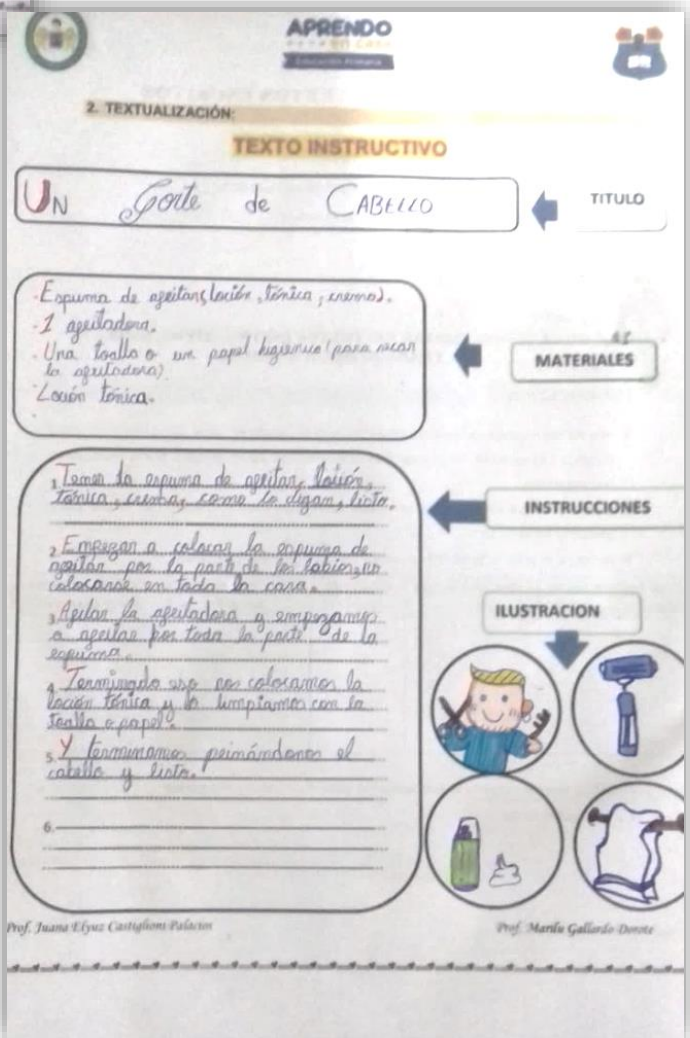 APRENDO
en casa
Educación Primaria
2. TEXTUALIZACIÓN:
TEXTO INSTRUCTIVO
UN Corte de CABELLO
TITULO
- Espuma de afeitar (loción, tónica, crema).
- 1 afeitadora.
- Una toalla o un papel higienico (para secar
la afeitadora)
- Loción tónica.
MATERIALES
1. Tener la espuma de afeitar, loción,
tónica, crema, como lo digan, listo.
INSTRUCCIONES
2. Empezar a colocar la espuma de
afeitar por la parte de los labios, no
colocarse en toda la cara.
3. la afeitadora y empezamos
a afeitar por toda la parte de la
espuma.
ILUSTRACION
4. Terminado eso nos colocamos la
loción tónica y lo limpiamos con la
toalla o papel.
5. Y terminamos peinándonos el
cabello y listo.
6.
Prof. Juana Elyuz Castiglioni Palacios
Prof. Marilu Gallardo Dorote